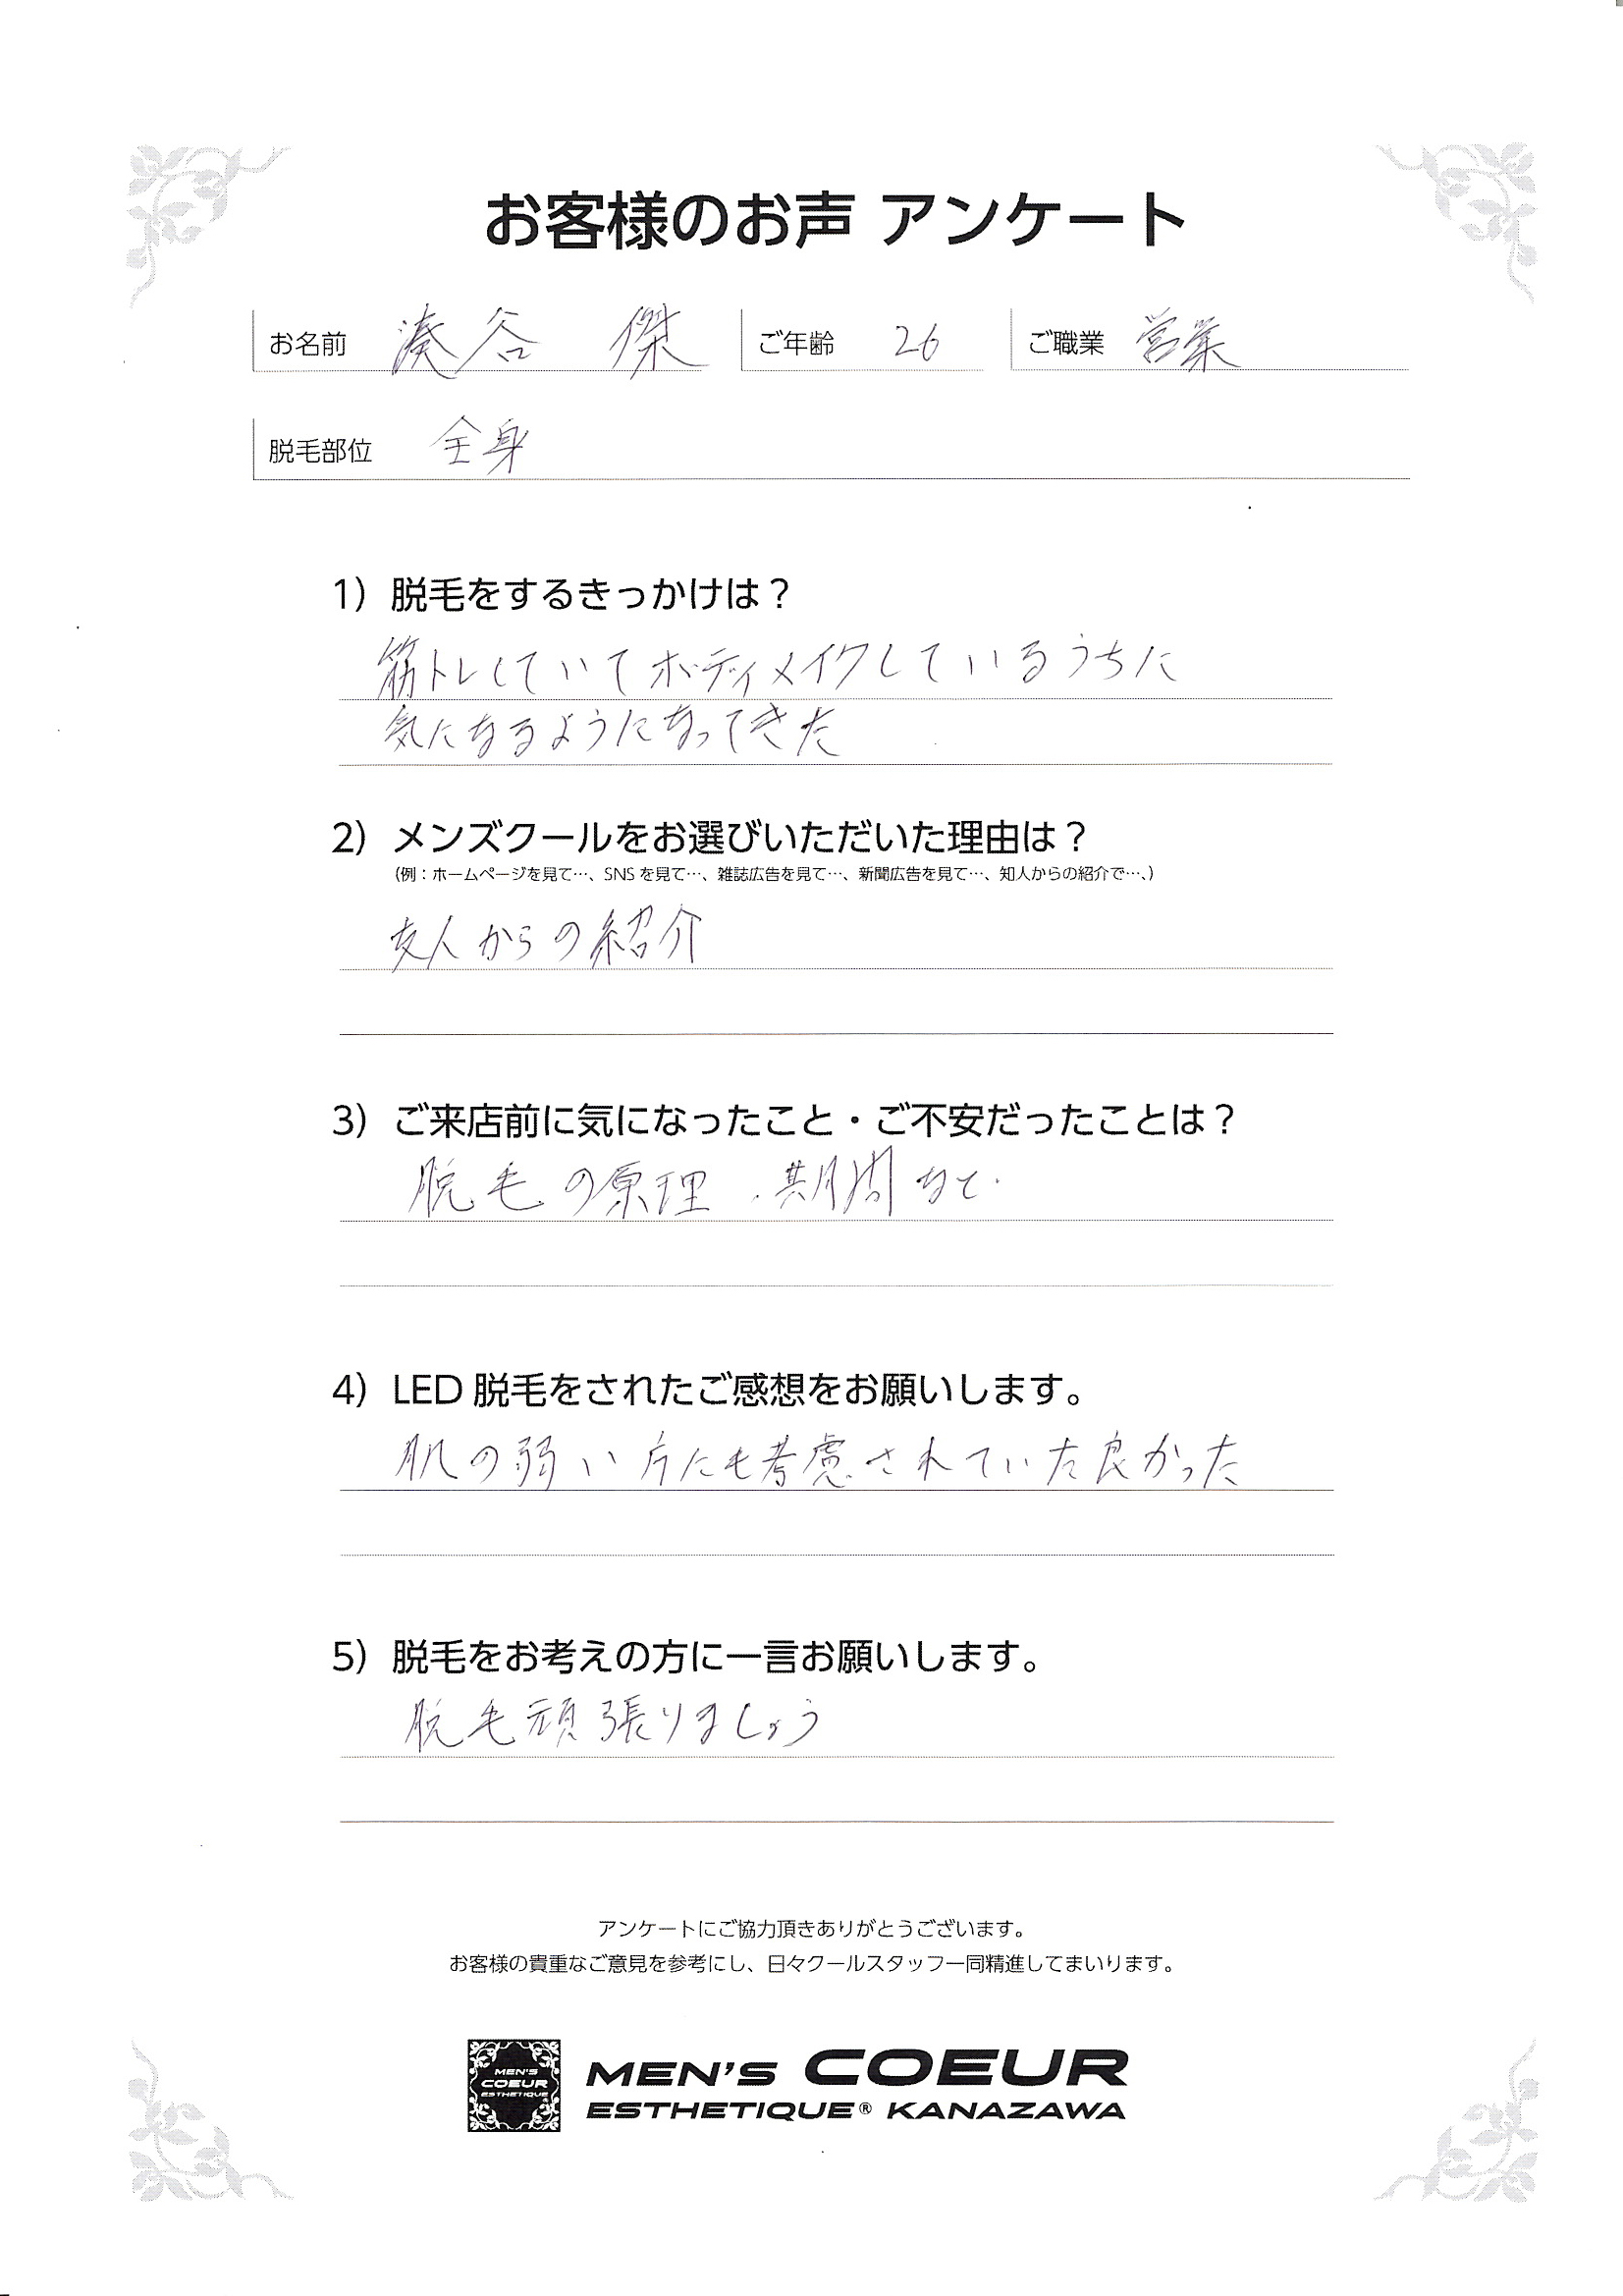 お客様のお声 アンケート
お名前 湊谷 傑 ご年齢 26 ご職業 営業
脱毛部位 全身
1）脱毛をするきっかけは？
筋トレしていてボディメイクしているうちに
気になるようになってきた
2）メンズクールをお選びいただいた理由は？
（例：ホームページを見て…、SNSを見て…、雑誌広告を見て…、新聞広告を見て…、知人からの紹介で…、）
友人からの紹介
3）ご来店前に気になったこと・ご不安だったことは？
脱毛の原理、期間など
4）LED 脱毛をされたご感想をお願いします。
肌の弱い方にも考慮されていた良かった
5）脱毛をお考えの方に一言お願いします。
脱毛頑張りましょう
アンケートにご協力頂きありがとうございます。
お客様の貴重なご意見を参考にし、日々クールスタッフ一同精進してまいります。
MEN'S
COEUR
ESTHETIQUE
MEN'S COEUR
ESTHETIQUE® KANAZAWA